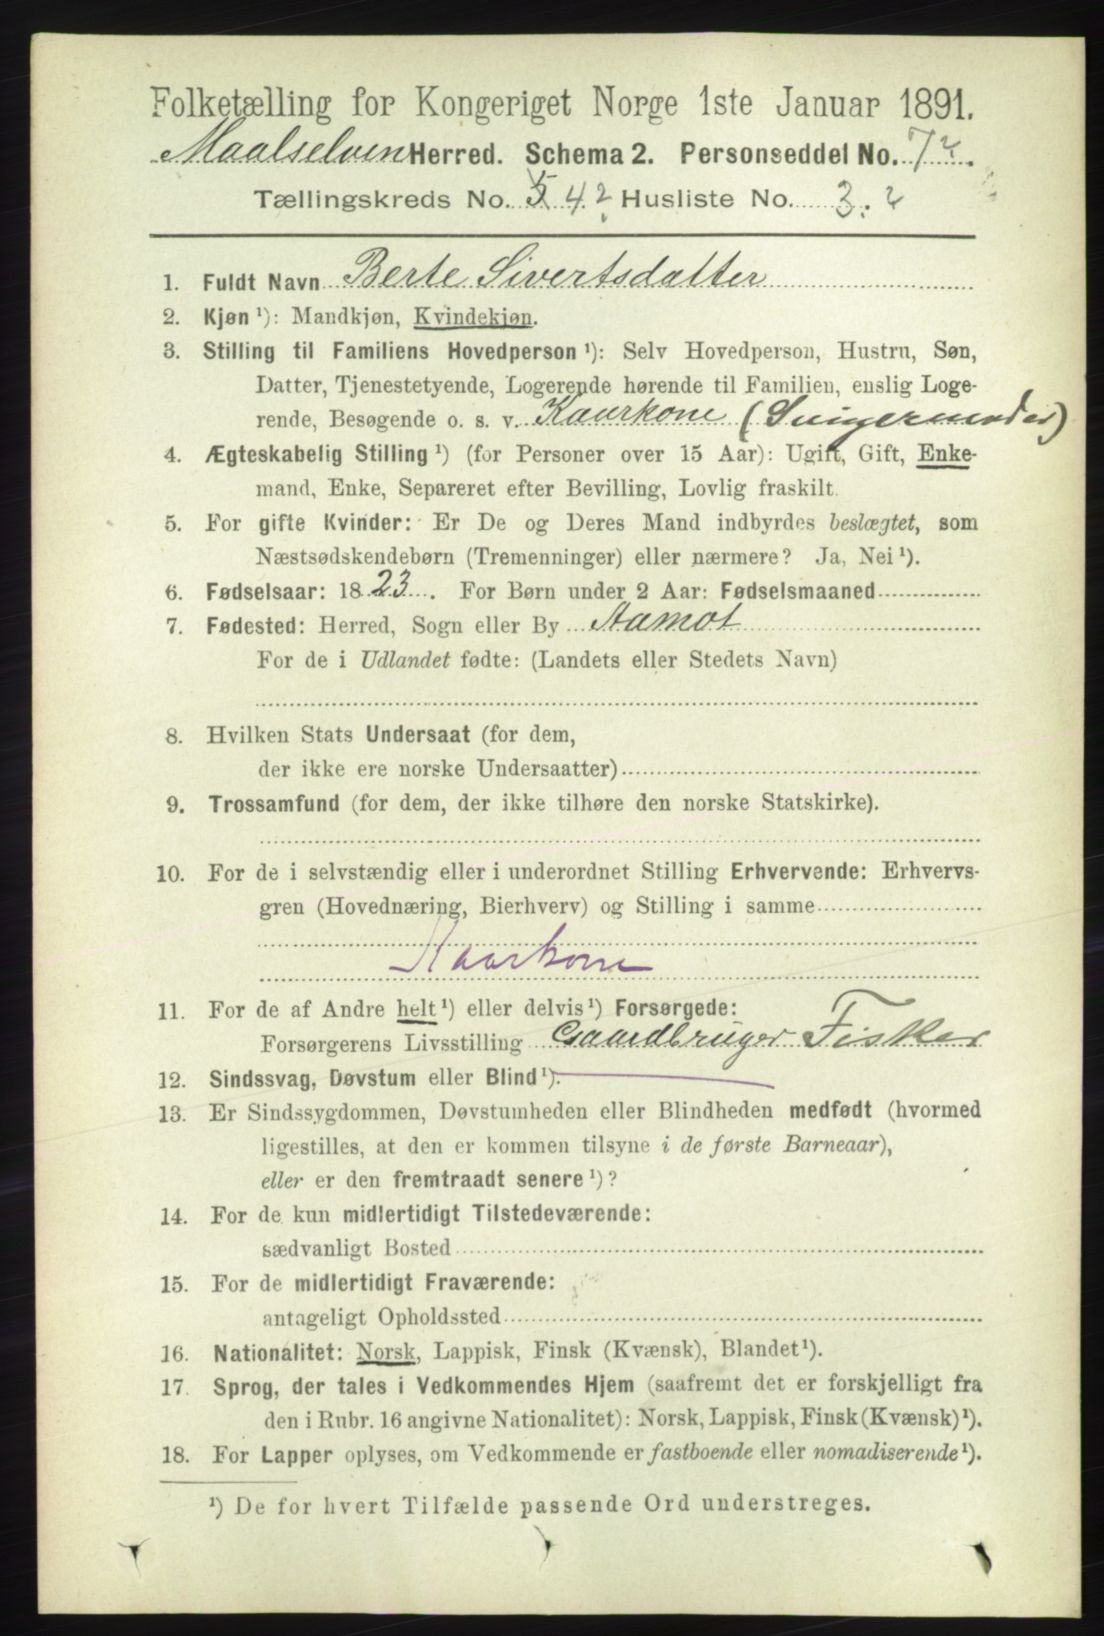 Folketælling for Kongeriget Norge 1ste Januar 1891.
Maalselven Herred. Schema 2. Personseddel No. 7
Tællingskreds No. 5 4 2 Husliste No. 3.
1. Fuldt Navn Berte Sivertsdatter
2. Kjøn ¹): Mandkjøn, Kvindekjøn.
3. Stilling til Familiens Hovedperson ¹): Selv Hovedperson, Hustru, Søn,
Datter, Tjenestetyende, Logerende hørende til Familien, enslig Loge-
rende, Besøgende o. s. v. Kaarkone (Svigermoder)
4. Ægteskabelig Stilling ¹) (for Personer over 15 Aar): Ugift, Gift, Enke-
mand, Enke, Separeret efter Bevilling, Lovlig fraskilt.
5. For gifte Kvinder: Er De og Deres Mand indbyrdes beslægtet, som
Næstsødskendebørn (Tremenninger) eller nærmere? Ja, Nei ¹).
6. Fødselsaar: 1823. For Børn under 2 Aar: Fødselsmaaned
7. Fødested: Herred, Sogn eller By Aamot
For de i Udlandet fødte: (Landets eller Stedets Navn)
8. Hvilken Stats Undersaat (for dem,
der ikke ere norske Undersaatter)
9. Trossamfund (for dem, der ikke tilhøre den norske Statskirke).
10. For de i selvstændig eller i underordnet Stilling Erhvervende: Erhvervs-
gren (Hovednæring, Bierhverv) og Stilling i samme
Kaarkone
11. For de af Andre helt ¹) eller delvis ¹) Forsørgede:
Forsørgerens Livsstilling Gaardbruger Fisker
12. Sindssvag, Døvstum eller Blind ¹).
13. Er Sindssygdommen, Døvstumheden eller Blindheden medfødt (hvormed
ligestilles, at den er kommen tilsyne i de første Barneaar),
eller er den fremtraadt senere ¹)?
14. For de kun midlertidigt Tilstedeværende:
sædvanligt Bosted
15. For de midlertidigt Fraværende:
antageligt Opholdssted
16. Nationalitet: Norsk, Lappisk, Finsk (Kvænsk), Blandet ¹).
17. Sprog, der tales i Vedkommendes Hjem (saafremt det er forskjelligt fra
den i Rubr. 16 angivne Nationalitet): Norsk, Lappisk, Finsk (Kvænsk) ¹).
18. For Lapper oplyses, om Vedkommende er fastboende eller nomadiserende ¹).
¹) De for hvert Tilfælde passende Ord understreges.